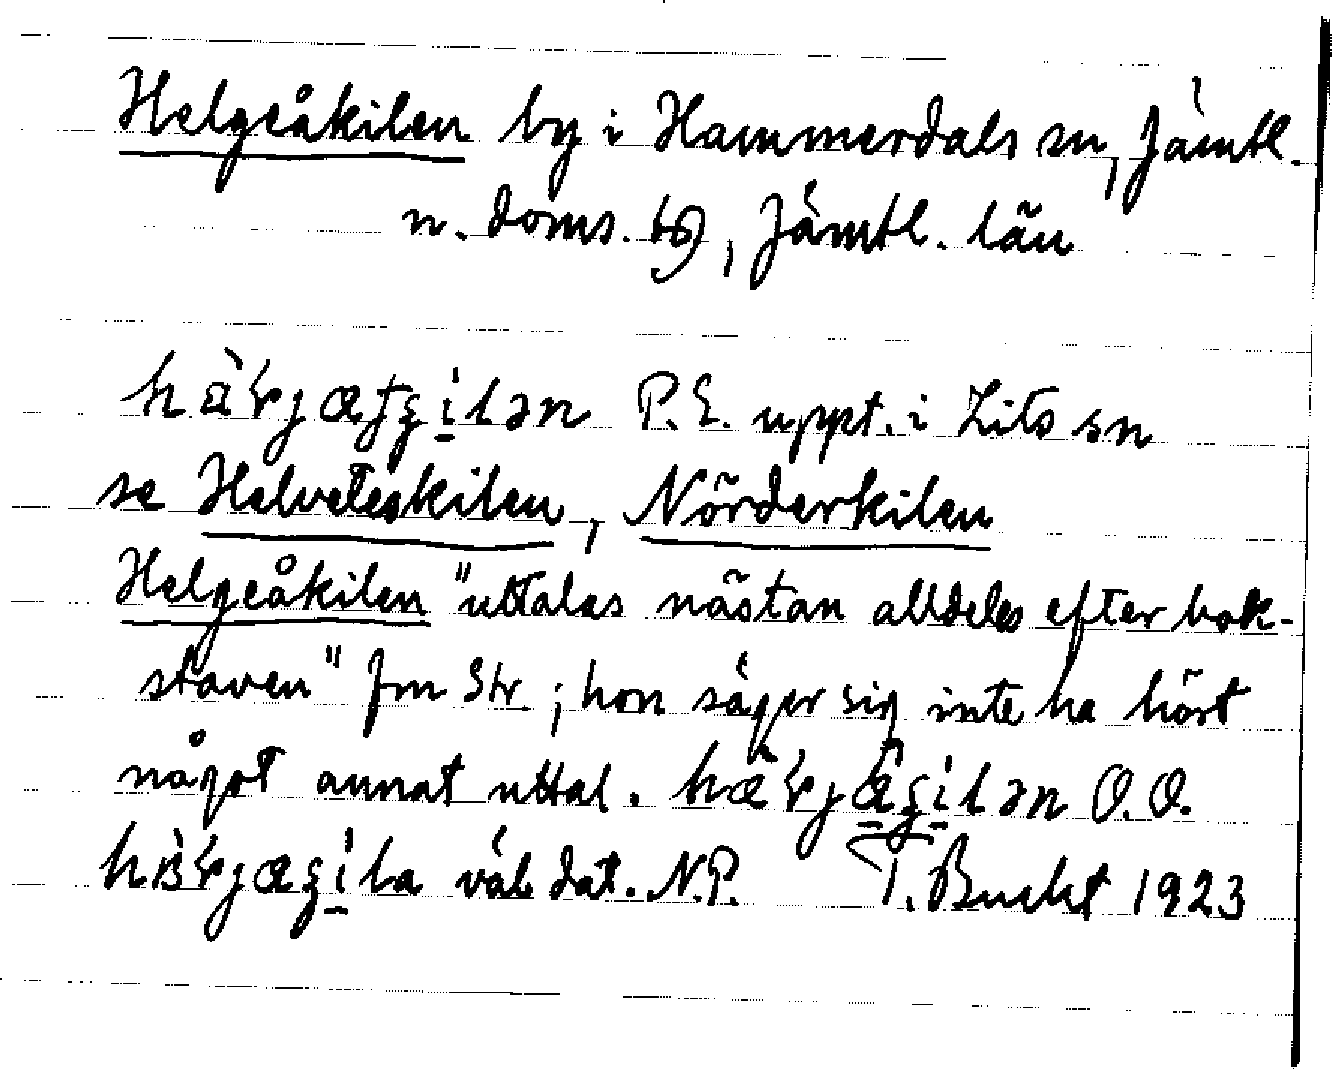 Helgeåkilen by i Hammerdals sn, Jämtl.
n. doms. , Jämtl. län
P.E. uppt. i Lits sn
se Helveteskilen, Nörderkilen
Helgeåkilen "uttalas nästan alldeles efter bok-
staven" fm Str ; hon säger sig inte ha hört
något annat uttal. O.O.
väl dat. N.P. T. Bucht 1923